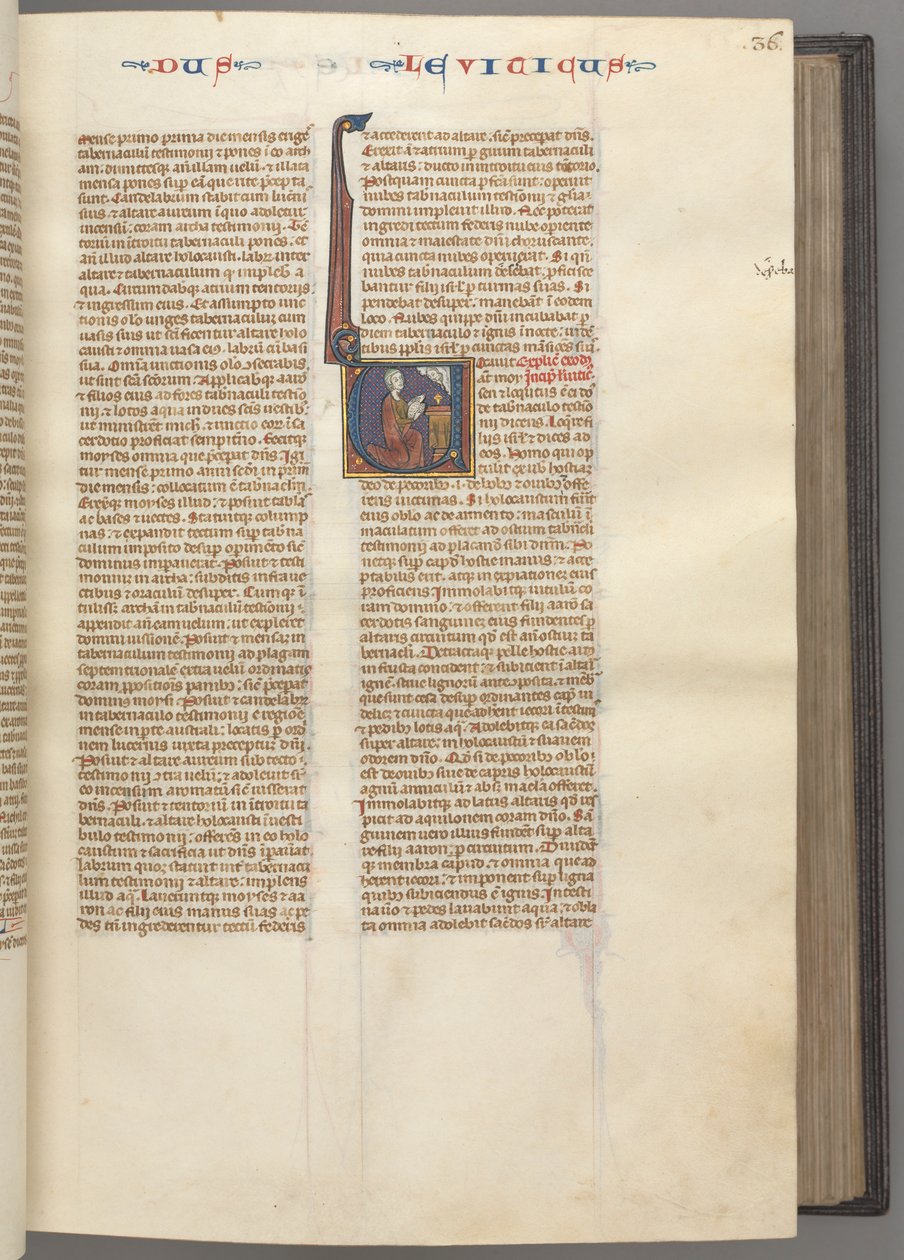 36.
DUS LEVITICUS
Mense primo prima die mensis erigeˀ
tabernaculū testimonii ⁊ pones ī eo arch
am: dimitesqꝫ añ illam uelū. ⁊ illata
mensa pones suꝑ eā que rite p̄cepta
sunt. Candelabrum stabit cum lucerni
suis ⁊ altare aureum ī quo adoletur
incensū: coram archa testimonii. Tē
toriū in ītroitu tabernaculi pones. et
añ illud altare holocausti. labꝝ inter
altare ⁊ tabernaculum qꝫ implebˀ a
qua. Circumdabqꝫ atrium tentoriis
⁊ ingressum eius. Et assumpto unc
tionis oleo unges tabernaculum cum
uasis suis ut sc̄ificentur altare holo
causti ⁊ omnia uasa eiꝰ. labrū cū basi
sua. Omīa unctionis oleo ꝯsecrabis
ut sint sc̄a sc̄orum. Applicabqꝫ aarō
⁊ filios eius ad fores tabernaculi testīo
nii. ⁊ lotos aqua indues sc̄is uestibꝫ
ut ministrēt michi. ⁊ unctio eorꝫ ī sa
cerdotio proficiat sempitnō. Fecitqꝫ
moyses omnia que p̄cepat dñs. Igi
tur mense primo anni sc̄di in prim
die mensis: collocatum ē tabnaclm.
Erexitqꝫ moyses illud: ⁊ posuit tablaˀ
ac bases ⁊ uectes. Statuitqꝫ columpˀ
nas: ⁊ expandit tectum suꝑ tabna
culum imposito desuꝑ opimēto sic̄
dominus impauerat. Posuit ⁊ testi
monium in archa: subditis infra ue
ctibus ⁊ oraculū desuper. Cumqꝫ ī
tulissꝫ archā in tabnaculū testimōii:
appendit añ eam uelum: ut expleret
domini iussionē. Posuit ⁊ mensam in
tabernaculum testimonii ad plagam
septemtrionalē extra uelū ordinatis
coram ꝓpositiōis panibꝫ: sic̄ p̄cepat
dominus moysi. Posuit ⁊ candelabrū
in tabernaculo testimonii e regiōe
mense in parte australi: locatis ꝑ ordˀ
nem lucernis iuxta preceptum dñi.
Posuit ⁊ altare aureum sub tecto
testimonii ꝯtra uelū: ⁊ adoleuit suꝑ
eo incensum aromatū sic̄ iusserat
dñs. Posuit ⁊ tentoriū in ītroitu ta
bernaculi. ⁊ altare holocausti ī uesti
bulo testimonii: offerens in eo holo
caustum ⁊ sacrificia ut dñs īpauat
labrum quoqꝫ statuit inter tabernacu
lum testimonii ⁊ altare: implens
illud aqua. Laueruntqꝫ moyses ⁊ aa
ron ac filii eius manus suas ac pe
des cū ingrederentur tectū federis
⁊ accederent ad altare. sic̄ precepat dñs.
Erexit ⁊ atrium ꝑ girum tabernaculi
⁊ altaris: ducto in introitu eius tētorio.
Postquam cuncta ꝑfecta sunt: operuit
nubes tabnaculum testimōii ⁊ gl̄ia
domini impleuit illud. Nec poterat
ingredi tectum federis nube operiente
omnia ⁊ maiestate dñi choruscante.
quia cuncta nubes operuerat. Si qñ
nubes tabnaculum deserebat. ꝓficisce
bantur filii isrl ꝑ turmas suas. Si
pendebat desuper. manebāt ī eodem
loco. Nubes quippe dñi incubabat ꝑ
diem tabernaculo ⁊ ignis ī nocte: uidē
tibus pplis isrl ꝑ cunctas māsiōes suaˀ.
Vocauit Explic̄ exodꝰ
aūt moy Incipˀ leuitic
sen ⁊ locutus ē ei dñs
de tabnaculo testimo
nii dicens. Loquere fi
liis isrl ⁊ dices ad
eos. Homo qui opˀ
tulit ex uob hostiam
deo de pecoribꝫ .i. de bobꝫ ⁊ ouibꝫ offe
rens uictimas. Si holocaustum fuīt
eius oblō ac de armento. masculū ī
maculatum offeret ad ostium tabn̄cli
testimonii ad placandū sibi dñm. Po
netqꝫ suꝑ caput hostie manus. ⁊ acce
ptabilis erit. atqꝫ in expiationem eius
proficiens Immolabitqꝫ uitulū co
ram domino. ⁊ offerent filii aarō sa
cerdotis sanguinem eius fundentes ꝑ
altaris circuitum qd est añ ostiū ta
bernacli. Detractaqꝫ pelle hostie artꝰ
in frusta concident. ⁊ subicient ī altaˀ
ignē. strue lignorū ante ꝯposita. ⁊ mēbˀ
que sunt cesa desuꝑ ordinantes caput ui
delicet ⁊ cuncta que adherent iecori ītestinˀ
⁊ pedibꝫ lotis aqua. Adolebitqꝫ ea sac̄dos
super altare: in holocaustū ⁊ suauem
odorem dño. Qd si de pecoribꝫ oblō
est de ouibꝫ siue de capris holocaustū
agnū anniculū ⁊ absqꝫ macla offeret.
Immolabitqꝫ ad latus altaris qd res
picit ad aquilonem coram dño. San
guinem uero illius fundēt suꝑ alta
re filii aaron: ꝑ circuitum. Diuidēt
qꝫ membra caput. ⁊ omnia que ad
herent iecori. ⁊ imponent suꝑ ligna
quibꝫ subiciendus ē ignis. Intesti
na uō ⁊ pedes lauabunt aqua. ⁊ obla
ta omnia adolebit sac̄dos suꝑ altare